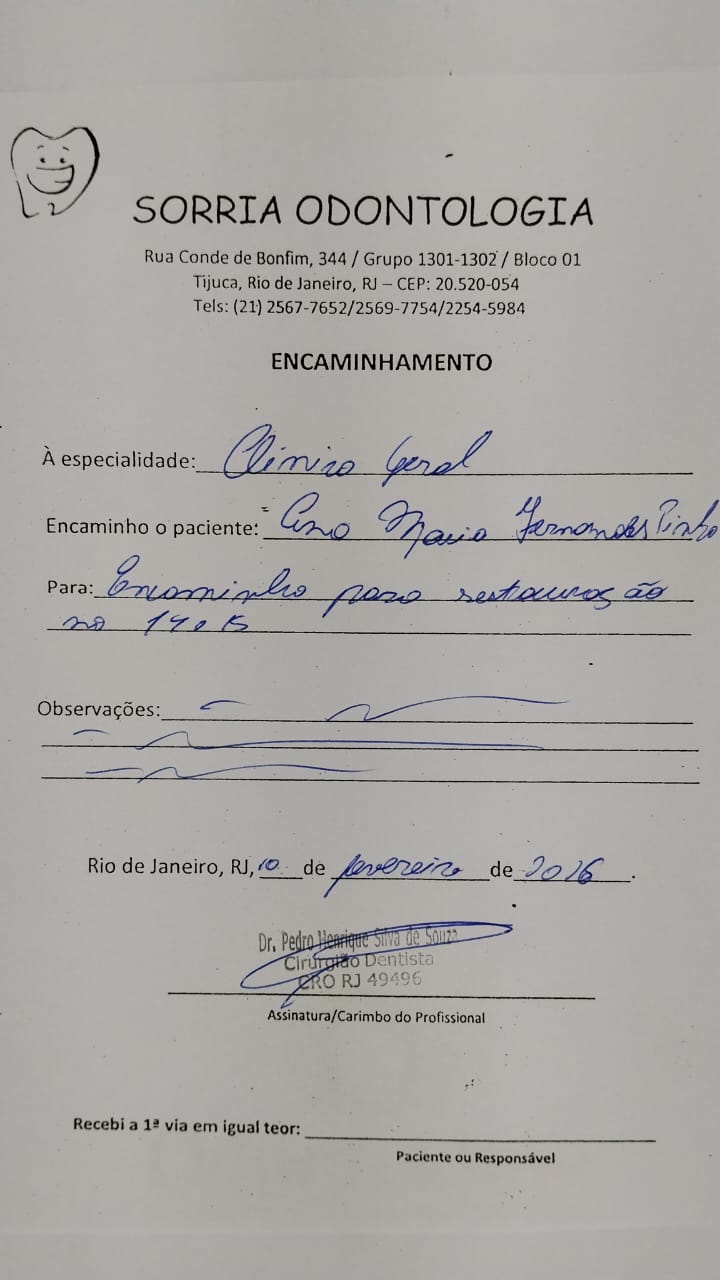 SORRIA ODONTOLOGIA
Rua Conde de Bonfim, 344 / Grupo 1301-1302 / Bloco 01
Tijuca, Rio de Janeiro, RJ – CEP: 20.520-054
Tels: (21) 2567-7652/2569-7754/2254-5984
ENCAMINHAMENTO
À especialidade: Clínico Geral
Encaminho o paciente: Maria Fernandes Pinho
Para: Encaminho para restauração
no 14 e 15
Observações:
Rio de Janeiro, RJ, 10 de fevereiro de 2026.
Dr. Pedro Henrique Silva de Souza
Cirurgião Dentista
CRO RJ 49496
Assinatura/Carimbo do Profissional
Recebi a 1ª via em igual teor:
Paciente ou Responsável